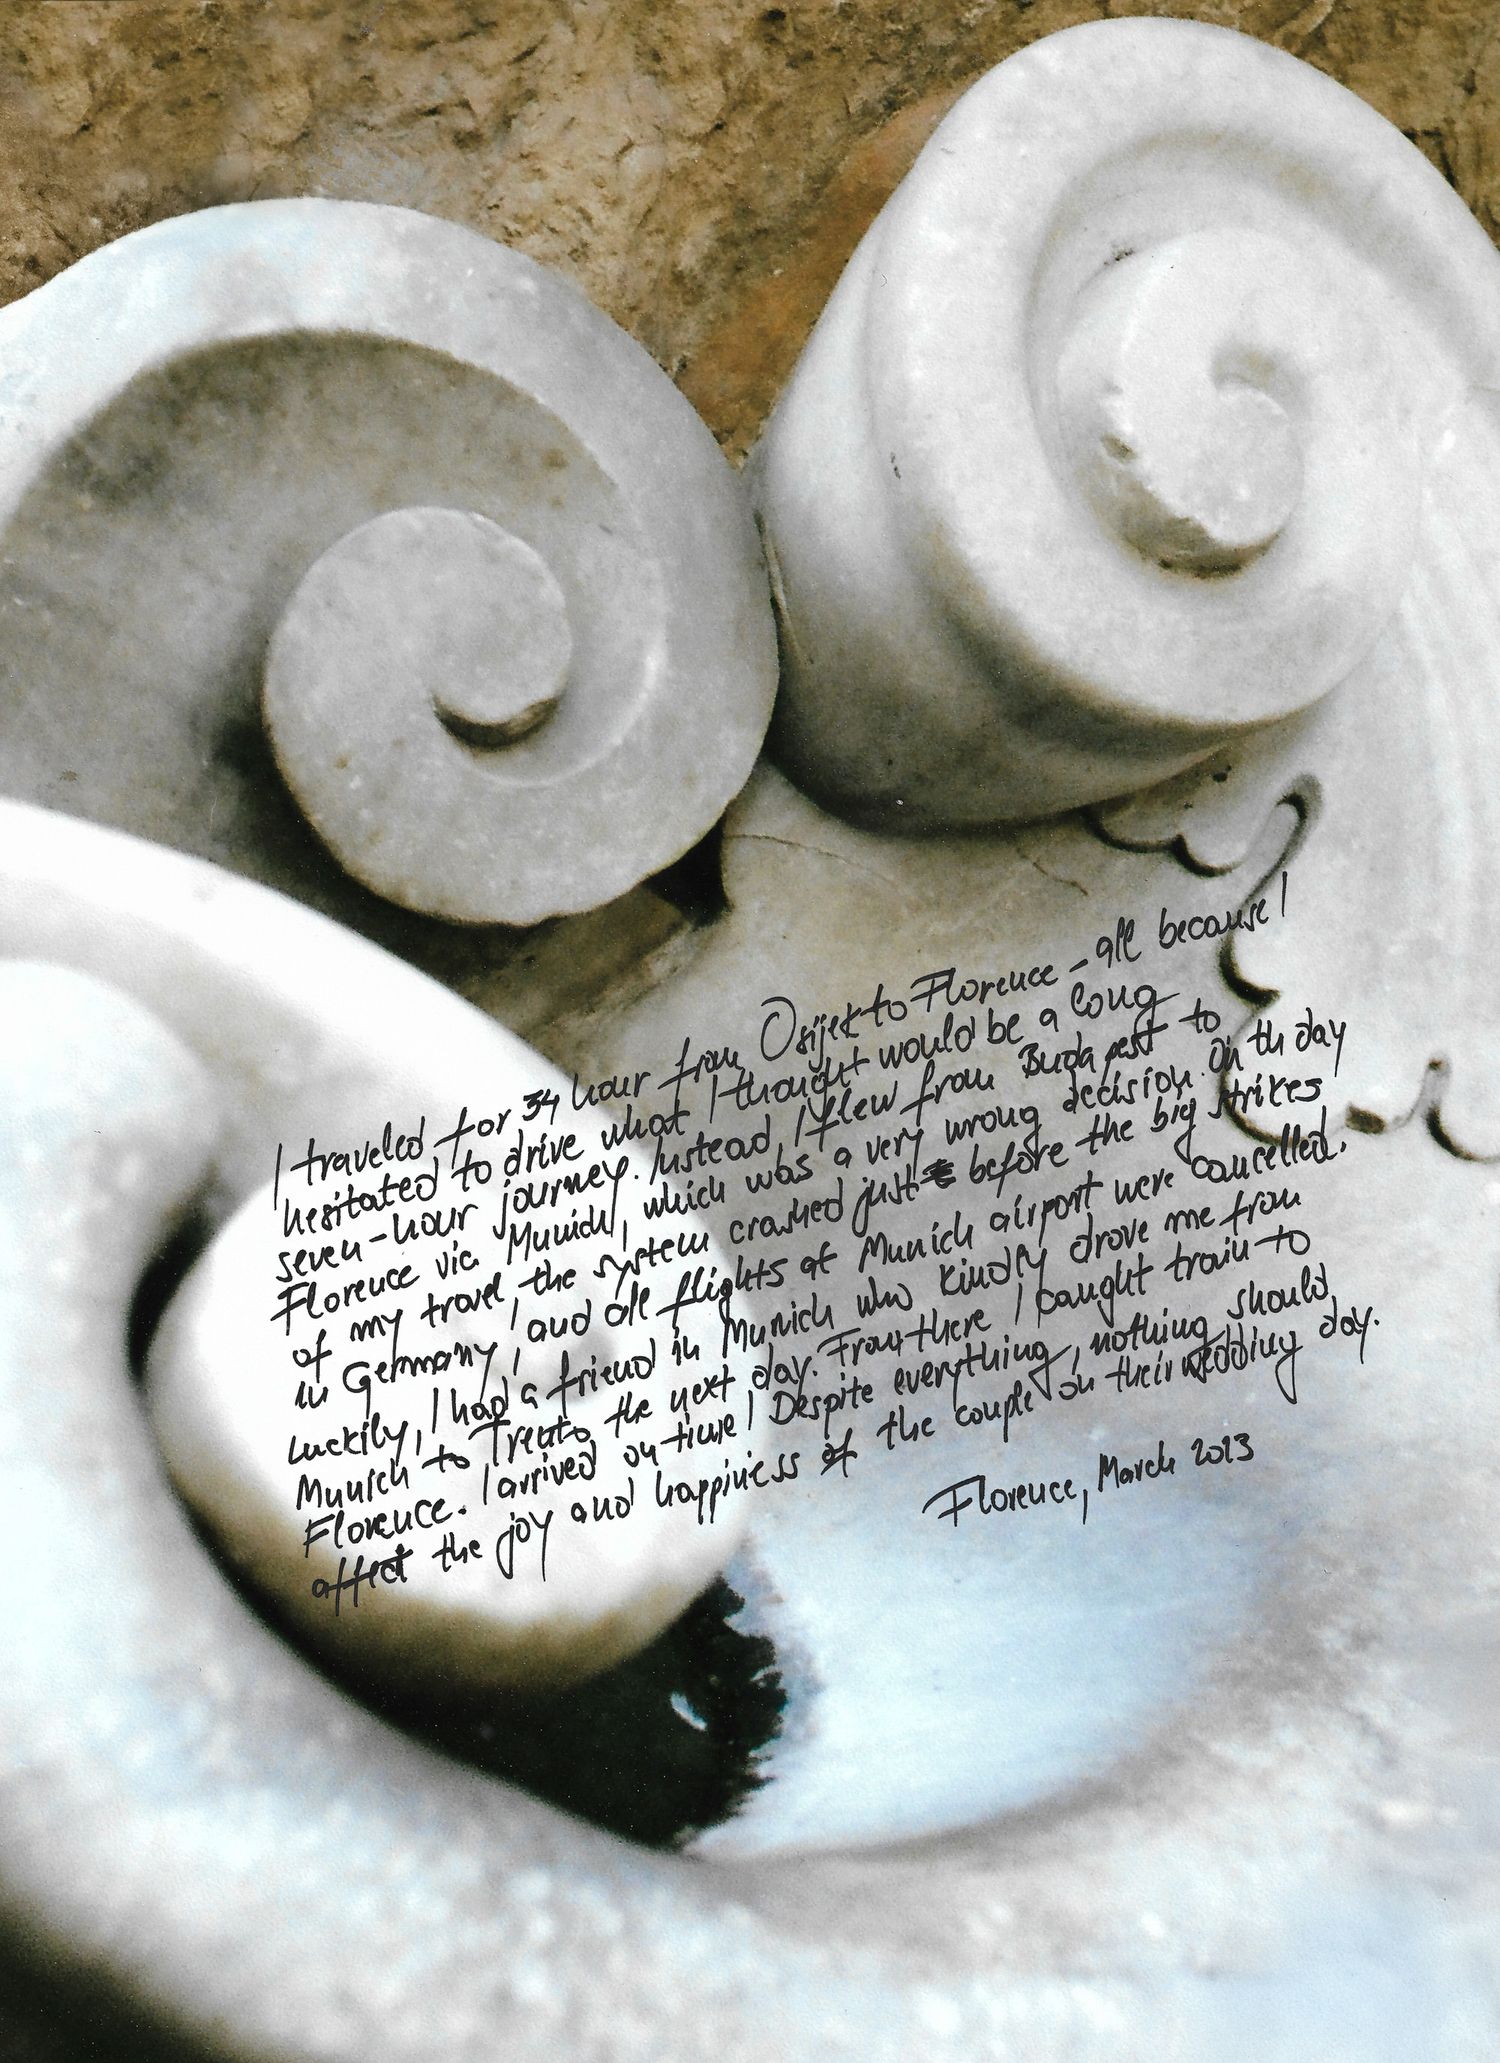 I traveled for 34 hour from Osijek to Florence - all because I
hesitated to drive what I thought would be a long
seven-hour journey. Instead, I flew from Budapest to
Florence via Munich, which was a very wrong decision. On th day
of my travel, the system crashed just before the big strikes
in Germany, and all flights at Munich airport were cancelled.
Luckily, I had a friend in Munich who kindly drove me from
Munich to Trento the next day. From there I caught train to
Florence. I arrived on time! Despite everything, nothing should
affect the joy and happiness of the couple on their wedding day.
Florence, March 2023